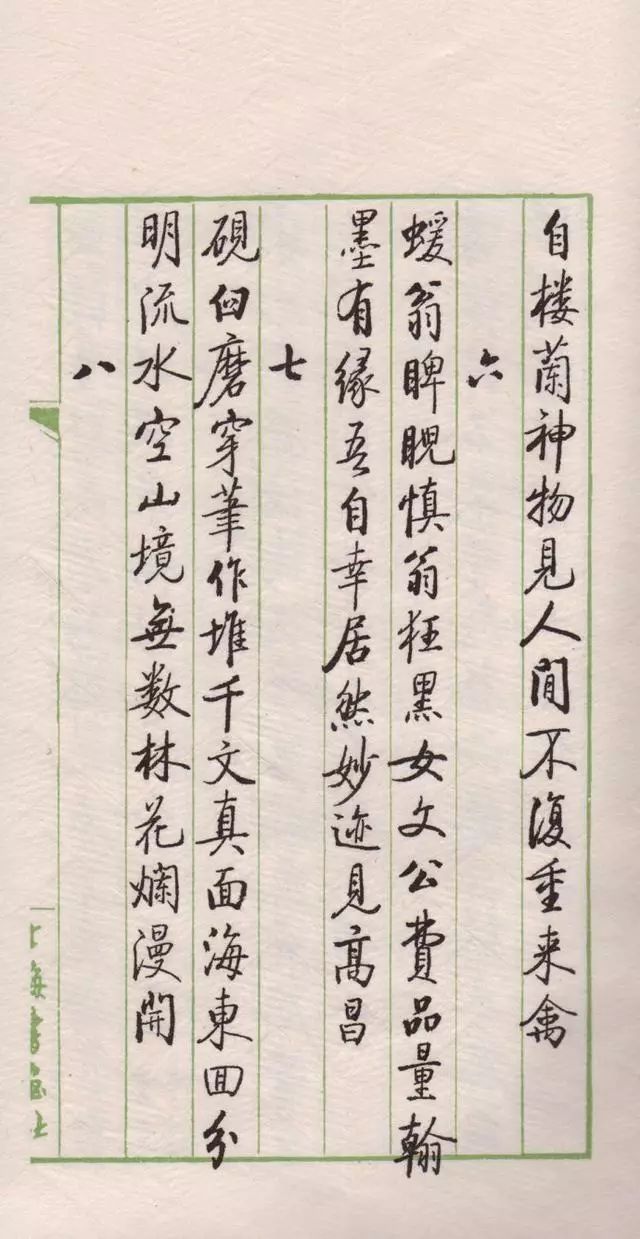 自楼蘭神物見人間不復重来禽
六
蝯翁睥睨慎翁狂黑女文公費品量翰
墨有緣吾自幸居然妙迹見高昌
七
硯臼磨穿筆作堆千文真面海東回分
明流水空山境無数林花爛漫開
八
上海書畫社